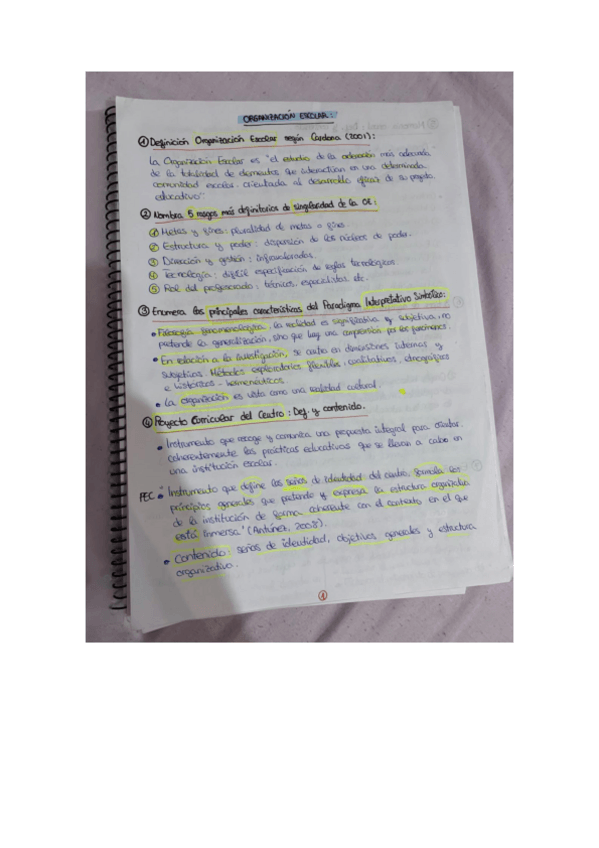 ORGANIZACIÓN ESCOLAR:
① Definición Organización Escolar según Cardona (2001):
La Organización Escolar es "el estudio de la ordenación más adecuada
de la totalidad de elementos que interactúan en una determinada
comunidad escolar orientada al desarrollo eficaz de su proyecto
educativo".
② Nombra 5 rasgos más definitorios de singularidad de la OE:
① Metas y fines: pluralidad de metas o fines.
② Estructura y poder: dispersión de los núcleos de poder.
③ Dirección y gestión: infravaloradas.
④ Tecnología: difícil especificación de reglas tecnológicas.
⑤ Rol del profesorado: técnicos, especialistas etc.
③ Enumera las principales características del Paradigma Interpretativo Simbólico:
• Filosofía fenomenológica, la realidad es significativa y subjetiva, no
pretende la generalización, sino que hay una comprensión por los fenómenos.
• En relación a la investigación, se centra en dimensiones internas y
subjetivas. Métodos exploratorios flexibles, cualitativos, etnográficos
e históricos - hermenéuticos.
• La organización es vista como una realidad cultural.
④ Proyecto Curricular del Centro: Def. y contenido.
• Instrumento que recoge y comunica una propuesta integral para orientar
coherentemente las prácticas educativas que se llevan a cabo en
una institución escolar.
PEC • "Instrumento que define las señas de identidad del centro, formula los
principios generales que pretende y expresa la estructura organizativa
de la institución de forma coherente con el contexto en el que
está inmersa" (Antúnez, 2008).
• Contenido: señas de identidad, objetivos generales y estructura
organizativa.
1